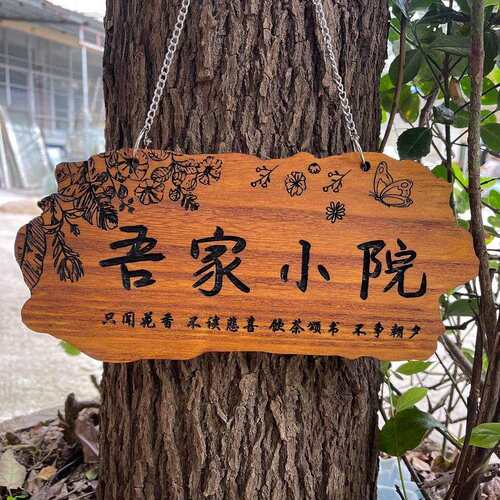 吾家小院
只闻花香 不谈慈喜 饮茶颂书 不争朝夕